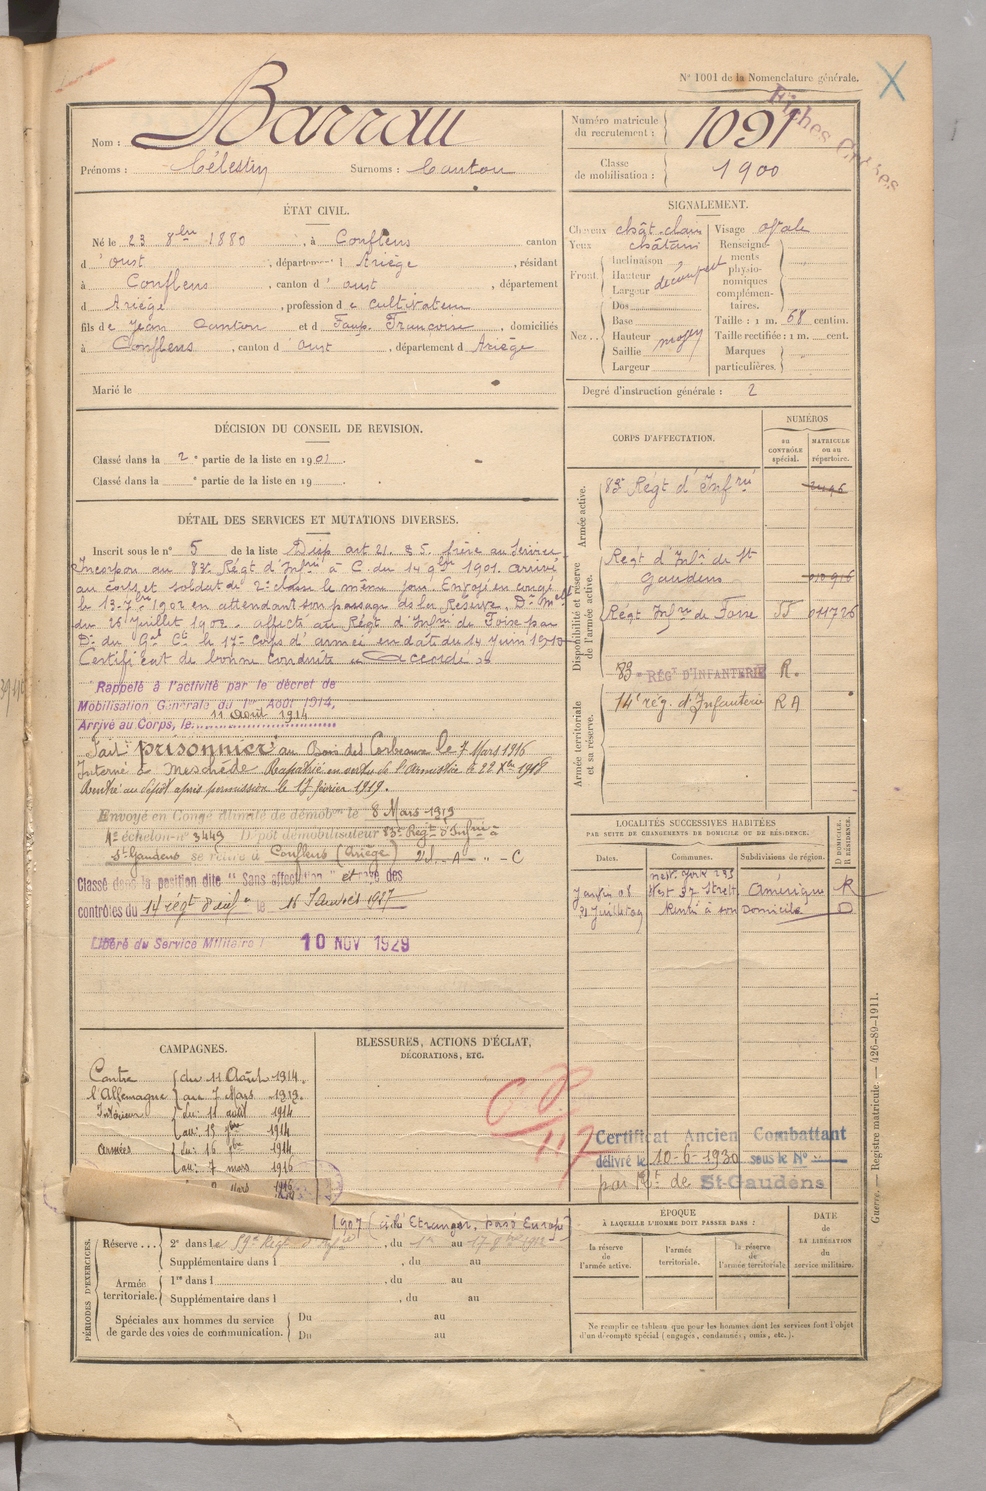 N° 1001 de la Nomenclature générale.
Fiches
Nom : Barrau
Prénoms : Célestin Surnoms : Canton
Numéro matricule du recrutement : 1091
Classe de mobilisation : 1900
ÉTAT CIVIL.
Né le 23 8bre 1880, à Conflens canton
d'oust, département d Ariège, résidant
à Conflens, canton d'oust, département
d Ariège, profession de cultivateur
fils de Jean Canton et d Faup. Françoise, domiciliés
à Conflens, canton d'oust, département d Ariège
Marié le
SIGNALEMENT.
Cheveux chât. clair
Yeux châtain
Front Inclinaison
Hauteur découvert
Largeur
Nez.. Dos
Base
Hauteur moyen
Saillie
Largeur
Visage ovale
Renseignements physionomiques complémentaires.
Taille : 1 m. 68 centim.
Taille rectifiée : 1 m. cent.
Marques particulières.
Degré d'instruction générale : 2
DÉCISION DU CONSEIL DE REVISION.
Classé dans la 2e partie de la liste en 1901.
Classé dans la e partie de la liste en 19 .
DÉTAIL DES SERVICES ET MUTATIONS DIVERSES.
Inscrit sous le n° 5 de la liste Disp art 21. § 5. frère au service
Incorporé au 83e Régt d'Infrie à C. du 14 9bre 1901. arrivé
au corps et soldat de 2e classe le même jour. Envoyé en congé
le 13 7bre 1902 en attendant son passage ds la Réserve. Don Melle
du 26 juillet 1902. affecté au Régt d'Infie de Foix par
Don du Gal Ct le 17e corps d'armée en date du 14 juin 1910
Certificat de bonne conduite Accordé
Rappelé à l'activité par le décret de
Mobilisation Générale du 1er Août 1914,
Arrivé au Corps, le 11 Août 1914
Fait prisonnier au Bois des Corbeaux le 7 Mars 1916
Interné à Meschède Rapatrié en vertu de l'Armistice le 22 Xbre 1918
Rentré au dépôt après permission le 17 février 1919.
Envoyé en Congé illimité de démobon le 8 Mars 1919
4e échelon n° 3449 Dépôt démobilisateur 83e Régt d'Infie à
St Gaudens se retire à Conflens (Ariège)
Classé dans la position dite "Sans affectation" et rayé des
contrôles du 14 régt d'infie le 15 Janvier 1927
Libéré du Service Militaire : 10 NOV 1929
CORPS D'AFFECTATION.
NUMÉROS
au CONTRÔLE spécial.
MATRICULE ou au répertoire.
Armée active.
83e Régt d'Infrie
Disponibilité et réserve de l'armée active.
Régt d'Infie de St Gaudens
Régt Infrie de Foix 011726
83e RÉGT D'INFANTERIE R.
Armée territoriale et sa réserve.
14e rég. d'Infanterie R A
LOCALITÉS SUCCESSIVES HABITÉES
PAR SUITE DE CHANGEMENTS DE DOMICILE OU DE RÉSIDENCE.
Dates. Communes. Subdivisions de région. D DOMICILE. R RÉSIDENCE.
New York 293
West 37 Street Amérique R
Rentré à son Domicile D
CAMPAGNES.
Contre l'Allemagne
du 11 Août 1914.
au 7 Mars 1919.
Intérieur du : 11 août 1914
au : 15 9bre 1914
armées du : 16 9bre 1914
au : 7 mars 1916
BLESSURES, ACTIONS D'ÉCLAT,
DÉCORATIONS, ETC.
Certificat Ancien Combattant
délivré le 10-6-1930 sous le N°
par Rt de St-Gaudens
PÉRIODES D'EXERCICES.
1907 (cité Etranger, passé Europe)
Réserve... 2e dans le 59e Régt d'Infie, du 1er au 17 9bre 1912
Supplémentaire dans l , du au
Armée territoriale. 1re dans l , du au
Supplémentaire dans l , du au
Spéciales aux hommes du service de garde des voies de communication. Du au
Du au
ÉPOQUE
À LAQUELLE L'HOMME DOIT PASSER DANS :
la réserve de l'armée active.
l'armée territoriale.
la réserve de l'armée territoriale
DATE de LA LIBÉRATION du service militaire.
Ne remplir ce tableau que pour les hommes dont les services font l'objet
d'un décompte spécial (engagés, condamnés, omis, etc.).
Guerre. — Registre matricule. — 426-89-1911.